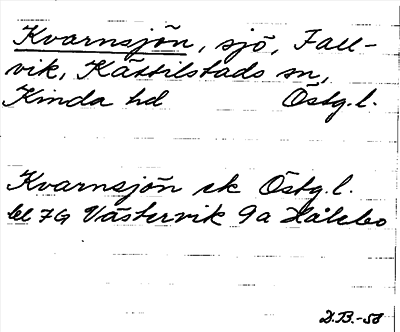 Kvarnsjön, sjö, Fall-
vik, Kättilstads sn,
Kinda hd Östg.l.
Kvarnsjön ek Östg.l.
bl 7G Västervik 9a Hålebo
D.B.-58